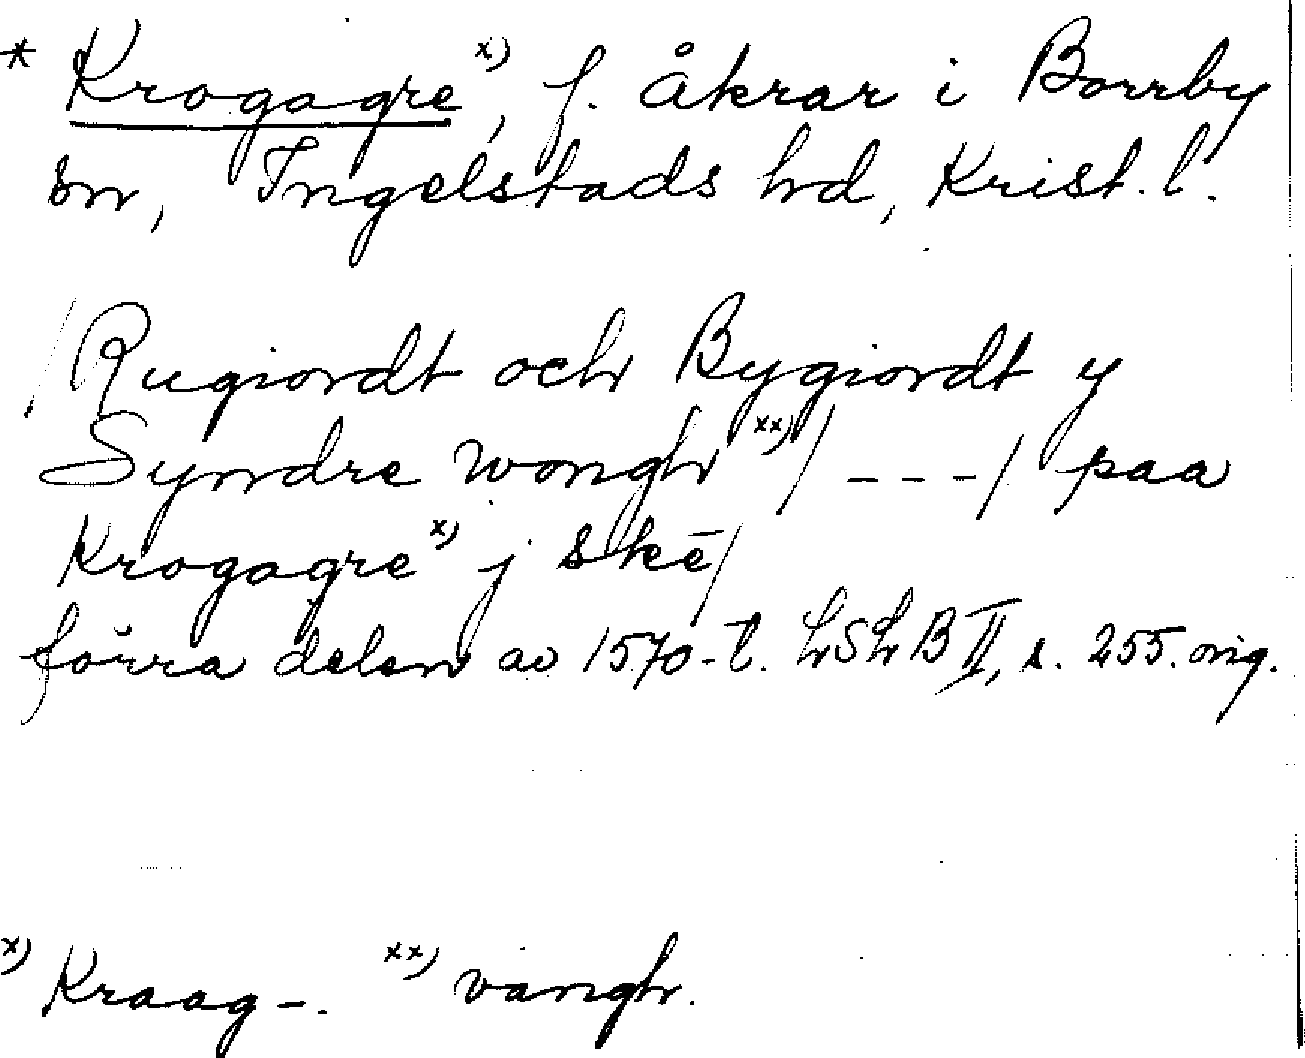 * Krogagre x), f. åkrar i Borrby
sn, Ingelstads hd, Krist. l.
/Rugiordt och Bygiordt y
Syndre wongh xx)/ - - - / paa
Krogagre x) j skē/
förra delen av 1570-t. LSLB II, s. 255. orig.
x) Kraag-. xx) vangh.